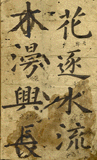 花逐水流
本湯興長